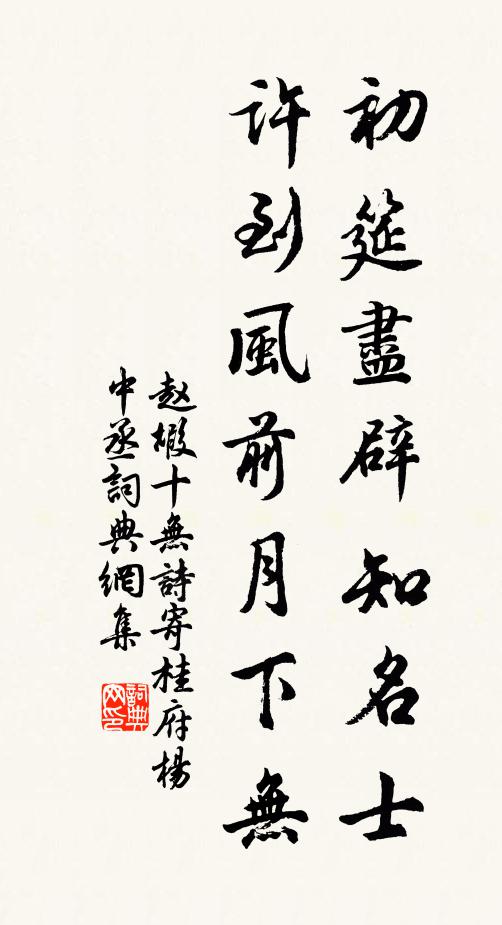 初筵盡辟知名士
許到風前月下無
赵嘏十無詩寄桂府楊
中丞詞典網集
詞典
网印